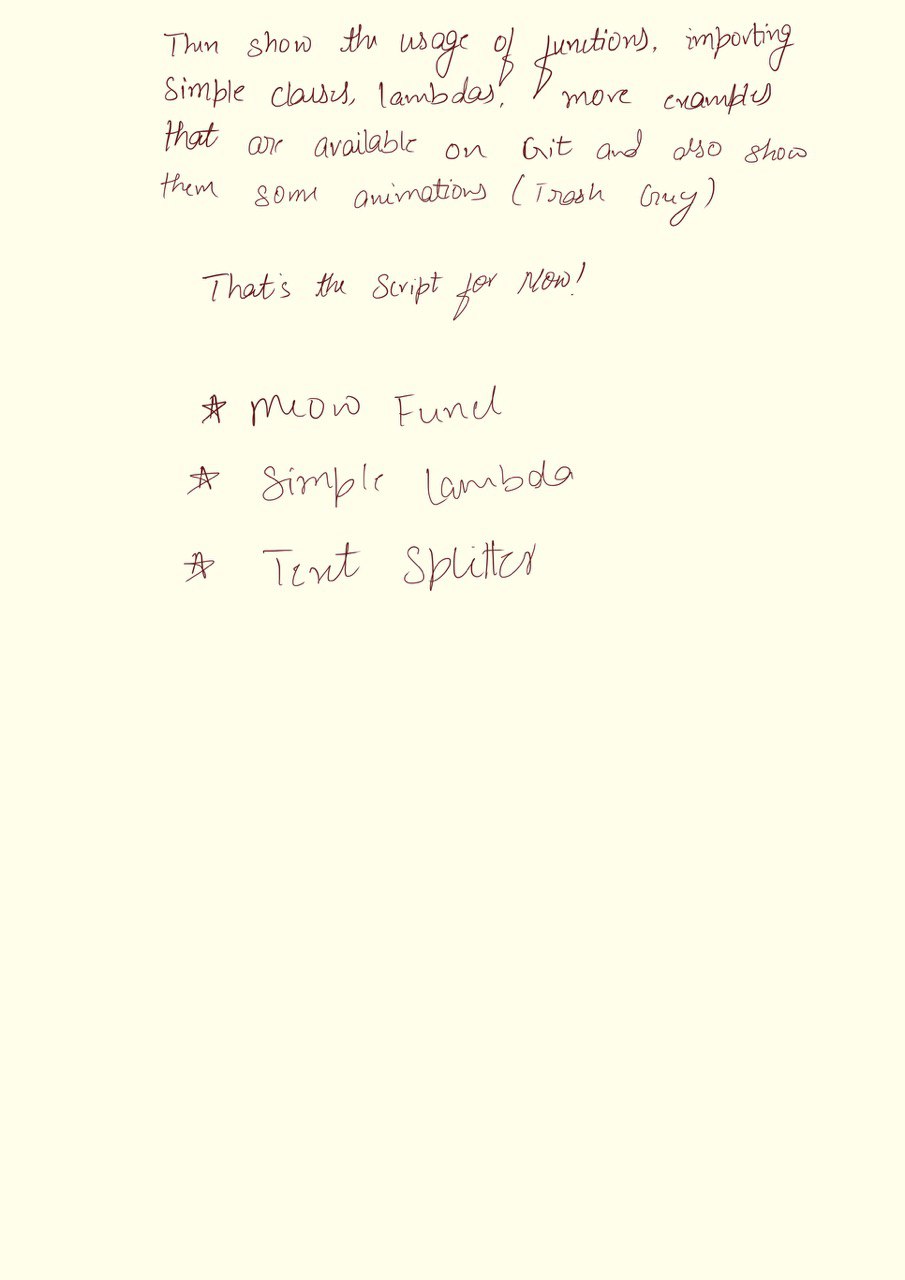 Then show the usage of functions, importing
Simple classes, lambdas, more examples
that are available on Git and also show
them some animations (Trash Guy)
That's the Script for Now!
☆ Meow Func
☆ Simple Lambda
☆ Text Splitter